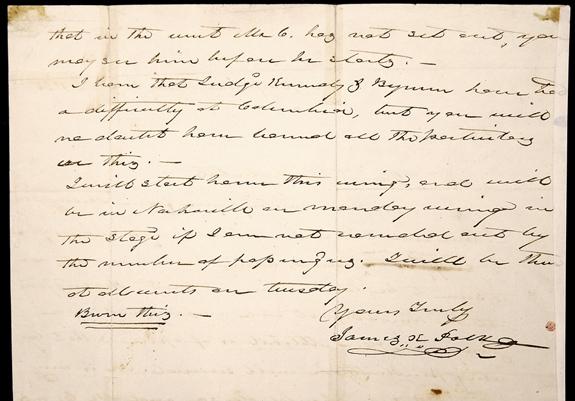 that in the event Mr C. has not set out, you
may see him before he starts. —
I learn that Judge Kennedy & Bynum have had
a difficulty at Columbia, but you will
no doubt have learned all the particulars
this. —
I will start home this evening, and will
be in Nashville on monday evening in
the stage if I am not crowded out by
the number of passengers. I will be then
at on tuesday.
Yours Truly
Burn this. —
James K Polk